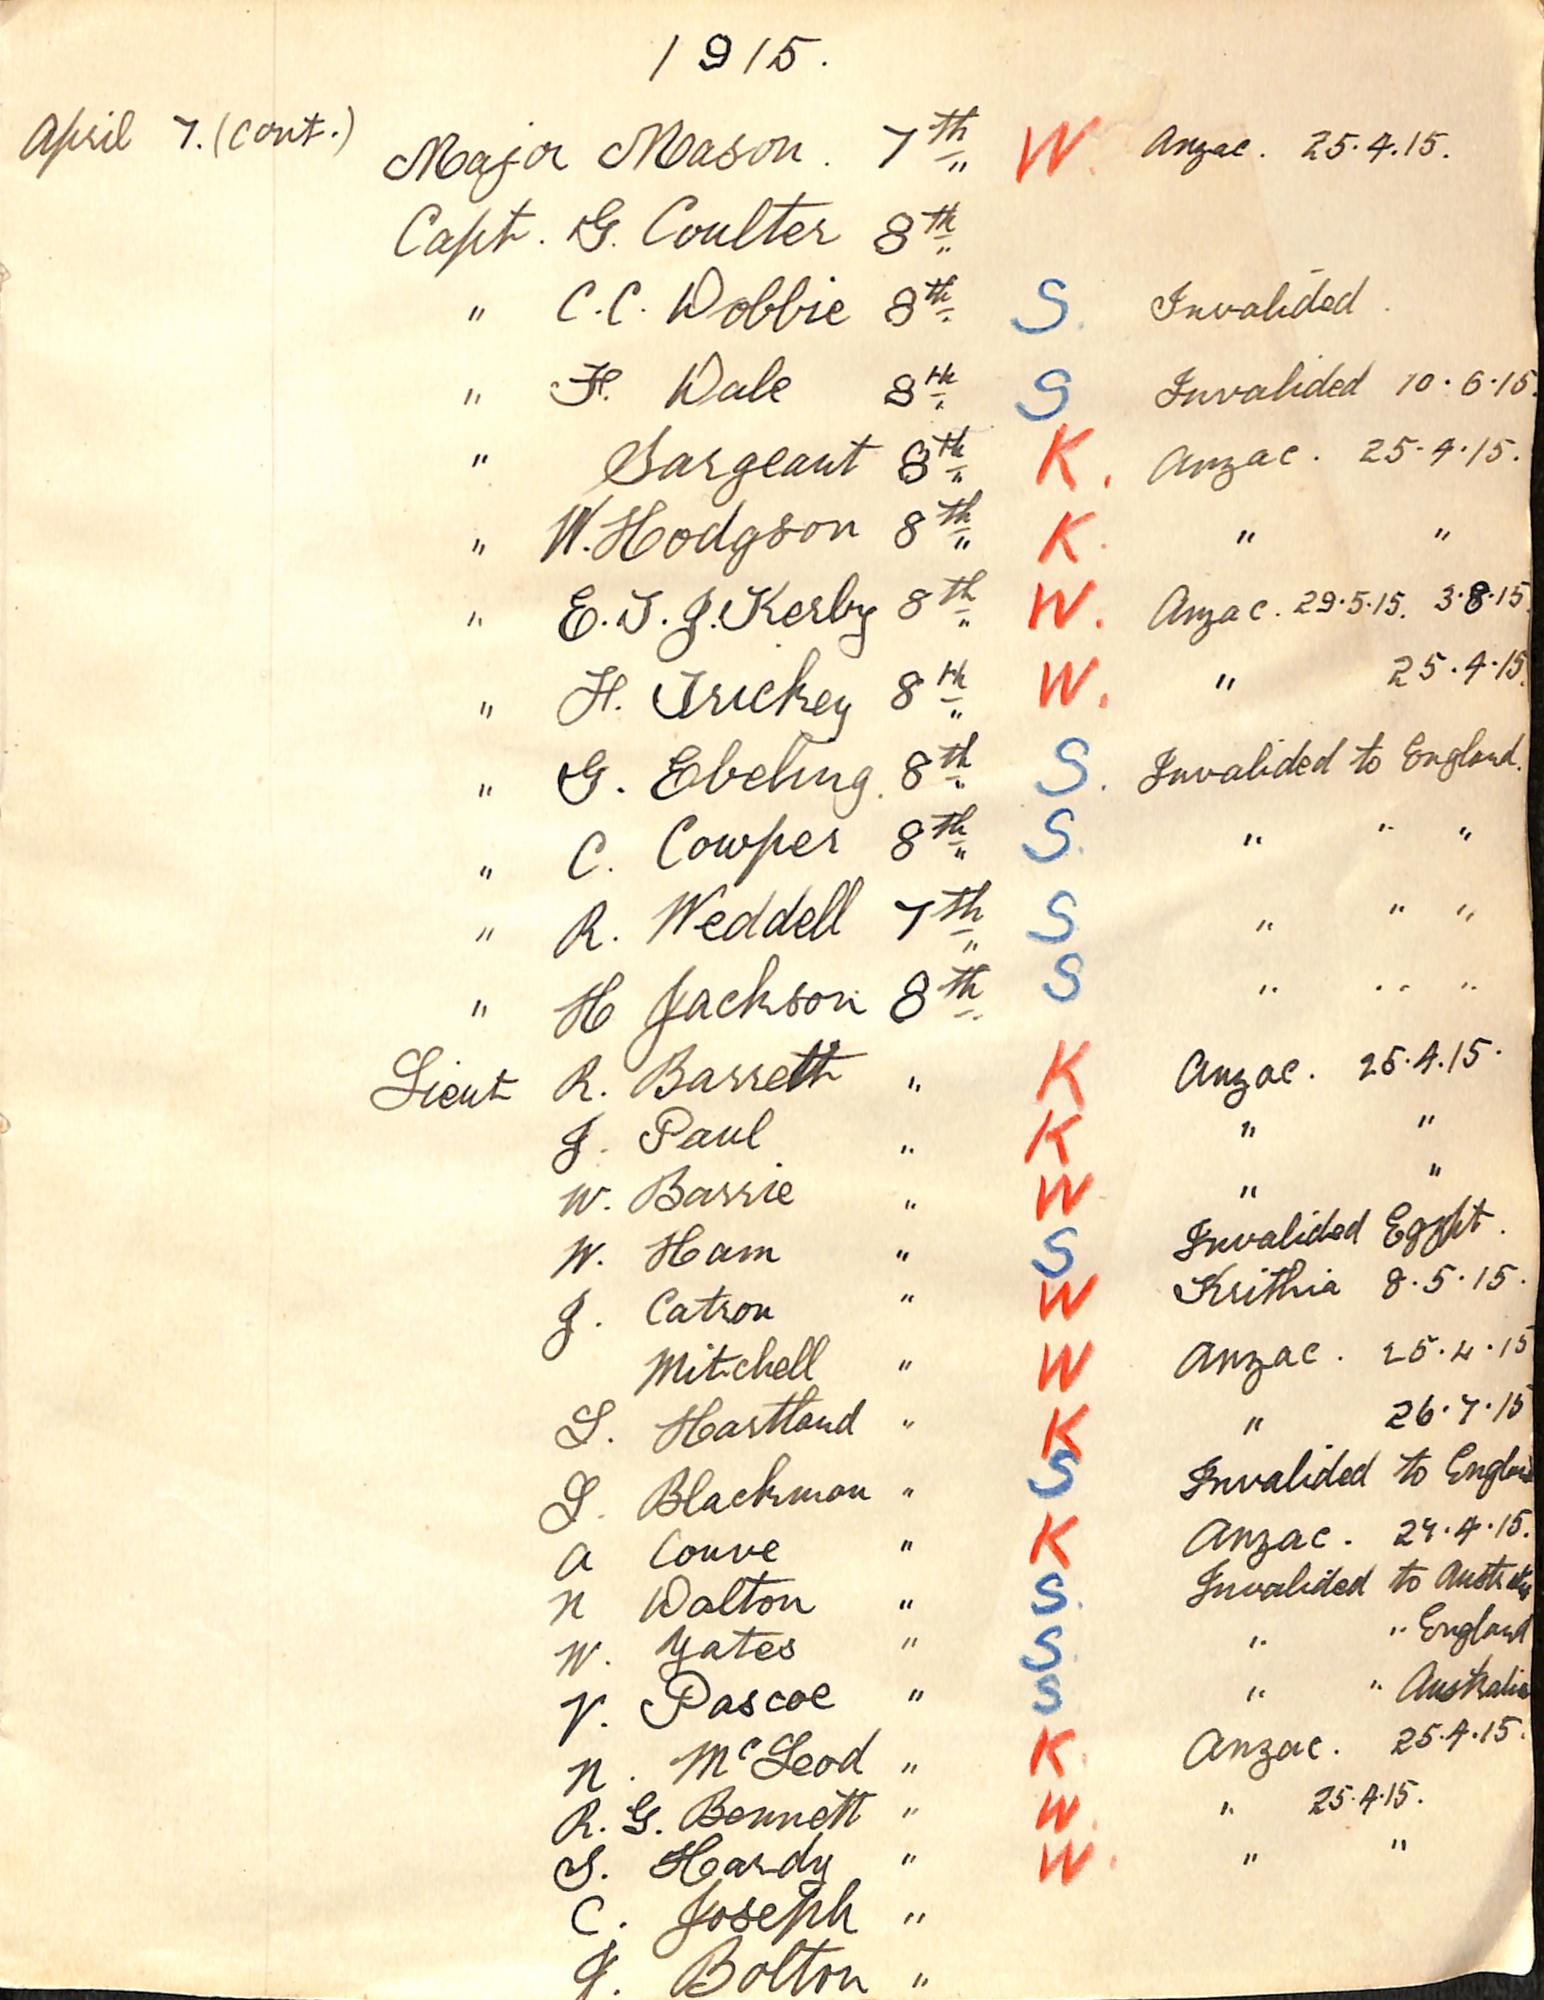 1915.
April 7. (cont.) Major Mason. 7th W. Anzac. 25.4.15.
Capt. G. Coulter 8th
" C.C. Dobbie 8th S. Invalided.
" F. Dale 8th S Invalided 10.6.15.
" Sargeant 8th K. Anzac. 25.4.15.
" W. Hodgson 8th K. " "
" E.T.J. Kerby 8th W. Anzac. 29.5.15. 3.8.15.
" H. Trickey 8th W. " 25.4.15.
" G. Ebeling. 8th S. Invalided to England.
" C. Cowper 8th S. " " "
" R. Weddell 7th S " " "
" H Jackson 8th S " " "
Lieut R. Barrett " K Anzac. 25.4.15.
J. Paul " K " "
W. Barrie " W " "
W. Ham " S Invalided Egypt.
J. Catron " W Krithia 8.5.15.
Mitchell " W Anzac. 25.4.15
L. Hartland " K " 26.7.15
L. Blackman " S Invalided to England
A Couve " K Anzac. 27.4.15.
N Walton " S. Invalided to Australia
W. Yates " S. " " England
V. Pascoe " S " " Australia
N. McLeod " K. Anzac. 25.4.15.
R. G. Bennett " W. " 25.4.15.
S. Hardy " W. " "
C. Joseph "
J. Bolton "